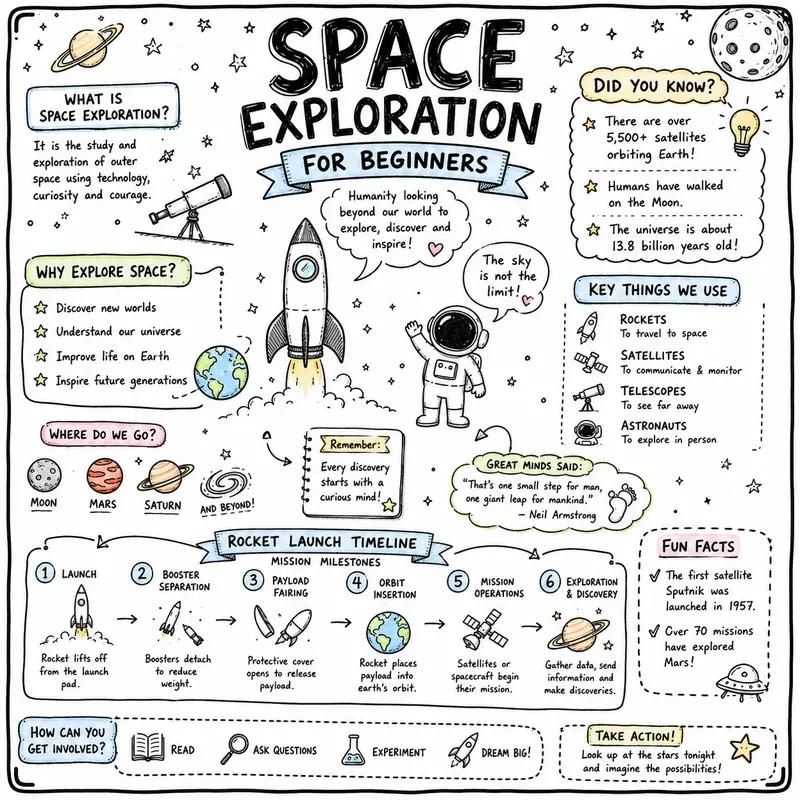 SPACE
EXPLORATION
FOR BEGINNERS
WHAT IS
SPACE EXPLORATION?
It is the study and
exploration of outer
space using technology,
curiosity and courage.
Humanity looking
beyond our world to
explore, discover and
inspire!
The sky
is not the
limit!
DID YOU KNOW?
There are over
5,500+ satellites
orbiting Earth!
Humans have walked
on the Moon.
The universe is about
13.8 billion years old!
WHY EXPLORE SPACE?
Discover new worlds
Understand our universe
Improve life on Earth
Inspire future generations
KEY THINGS WE USE
ROCKETS
To travel to space
SATELLITES
To communicate & monitor
TELESCOPES
To see far away
ASTRONAUTS
To explore in person
WHERE DO WE GO?
MOON
MARS
SATURN
AND BEYOND!
Remember:
Every discovery
starts with a
curious mind!
GREAT MINDS SAID:
"That's one small step for man,
one giant leap for mankind."
– Neil Armstrong
ROCKET LAUNCH TIMELINE
MISSION MILESTONES
1 LAUNCH
Rocket lifts off
from the launch
pad.
2 BOOSTER
SEPARATION
Boosters detach
to reduce
weight.
3 PAYLOAD
FAIRING
Protective cover
opens to release
payload.
4 ORBIT
INSERTION
Rocket places
payload into
earth's orbit.
5 MISSION
OPERATIONS
Satellites or
spacecraft begin
their mission.
6 EXPLORATION
& DISCOVERY
Gather data, send
information and
make discoveries.
FUN FACTS
The first satellite
Sputnik was
launched in 1957.
Over 70 missions
have explored
Mars!
HOW CAN YOU
GET INVOLVED?
READ
ASK QUESTIONS
EXPERIMENT
DREAM BIG!
TAKE ACTION!
Look up at the stars tonight
and imagine the possibilities!